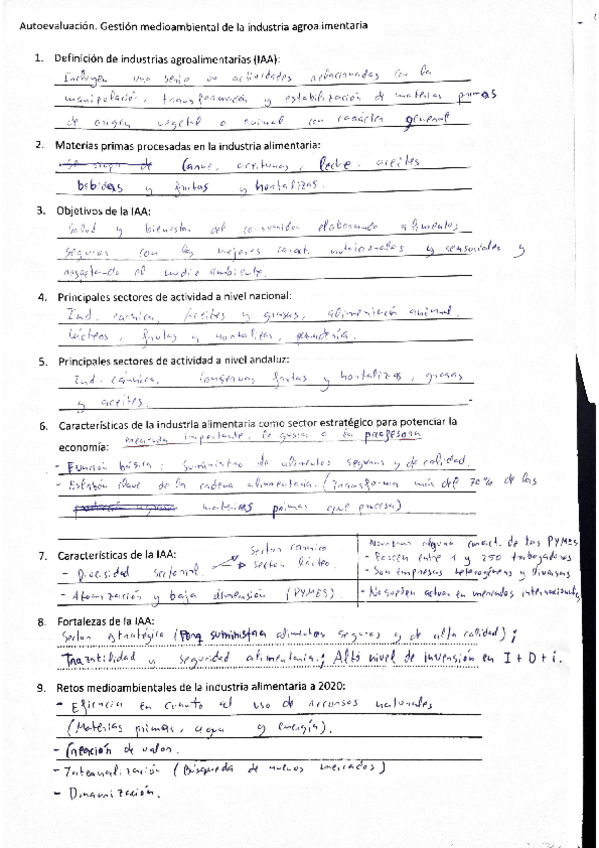 Autoevaluación. Gestión medioambiental de la industria agroalimentaria
1. Definición de industrias agroalimentarias (IAA):
Incluyen una serie de actividades relacionadas con la
manipulación, transformación y estabilización de materias primas
de origen vegetal o animal con carácter general
2. Materias primas procesadas en la industria alimentaria:
Carne, aceitunas, leche, aceites
bebidas y frutas y hortalizas.
3. Objetivos de la IAA:
Salud y bienestar del consumidor elaborando alimentos
seguros con las mejores caract. nutricionales y sensoriales y
respetando el medio ambiente.
4. Principales sectores de actividad a nivel nacional:
Ind. cárnica, Aceites y grasas, alimentación animal,
lácteos, frutas y hortalizas,
5. Principales sectores de actividad a nivel andaluz:
Ind. cárnica, conservas, frutas y hortalizas, grasas
y aceites.
6. Características de la industria alimentaria como sector estratégico para potenciar la
economía: pregunta importante, le gusta a la profesora
- Función básica: Suministro de alimentos seguros y de calidad.
- Eslabón clave de la cadena alimentaria. (Transforma más del 70% de las
materias primas que procesa)
7. Características de la IAA:
- Diversidad sectorial. → Sector cárnico
→ sector lácteo.
- Atomización y baja dimensión (PYMES)
Nombrar alguna caract. de las PYMES
- Poseen entre 1 y 250 trabajadores
- Son empresas heterogéneas y diversas
- No suelen actuar en mercados internacionales
8. Fortalezas de la IAA:
Sector estratégico (Porq suministra alimentos seguros y de alta calidad);
Trazabilidad y seguridad alimentaria.; Alto nivel de inversión en I+D+i.
9. Retos medioambientales de la industria alimentaria a 2020:
- Eficiencia en cuanto al uso de recursos naturales
(Materias primas, agua y energía).
- Creación de valor.
- (Búsqueda de nuevos mercados)
- Dinamización.